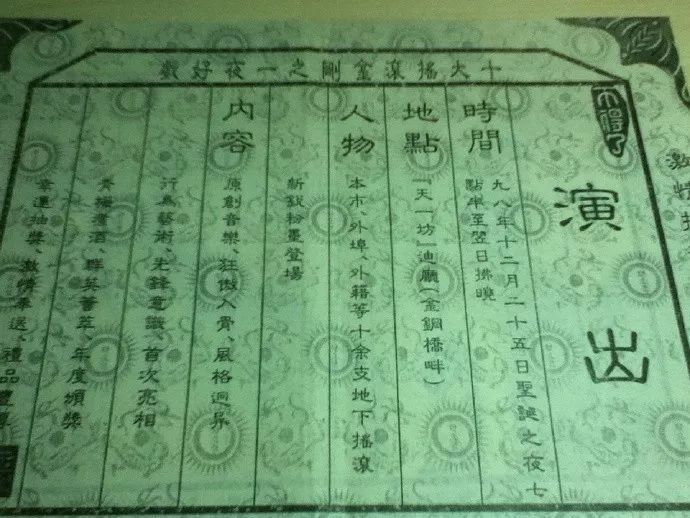 十大搖滾金剛之一夜好戲
激情
不得了
演出
時間
九八年十二月二十五日聖誕之夜七
點半至翌日拂曉
地點
『天一坊』迪廳(金鋼橋畔)
人物
本市、外埠、外籍等十余支地下搖滾
新銳粉墨登場
內容
原創音樂、狂傲入骨、風格迥异
行為藝術、先鋒意識、首次亮相
青梅煮酒、群英薈萃、年度頒獎
幸運抽獎、激情奉送、禮品豐厚